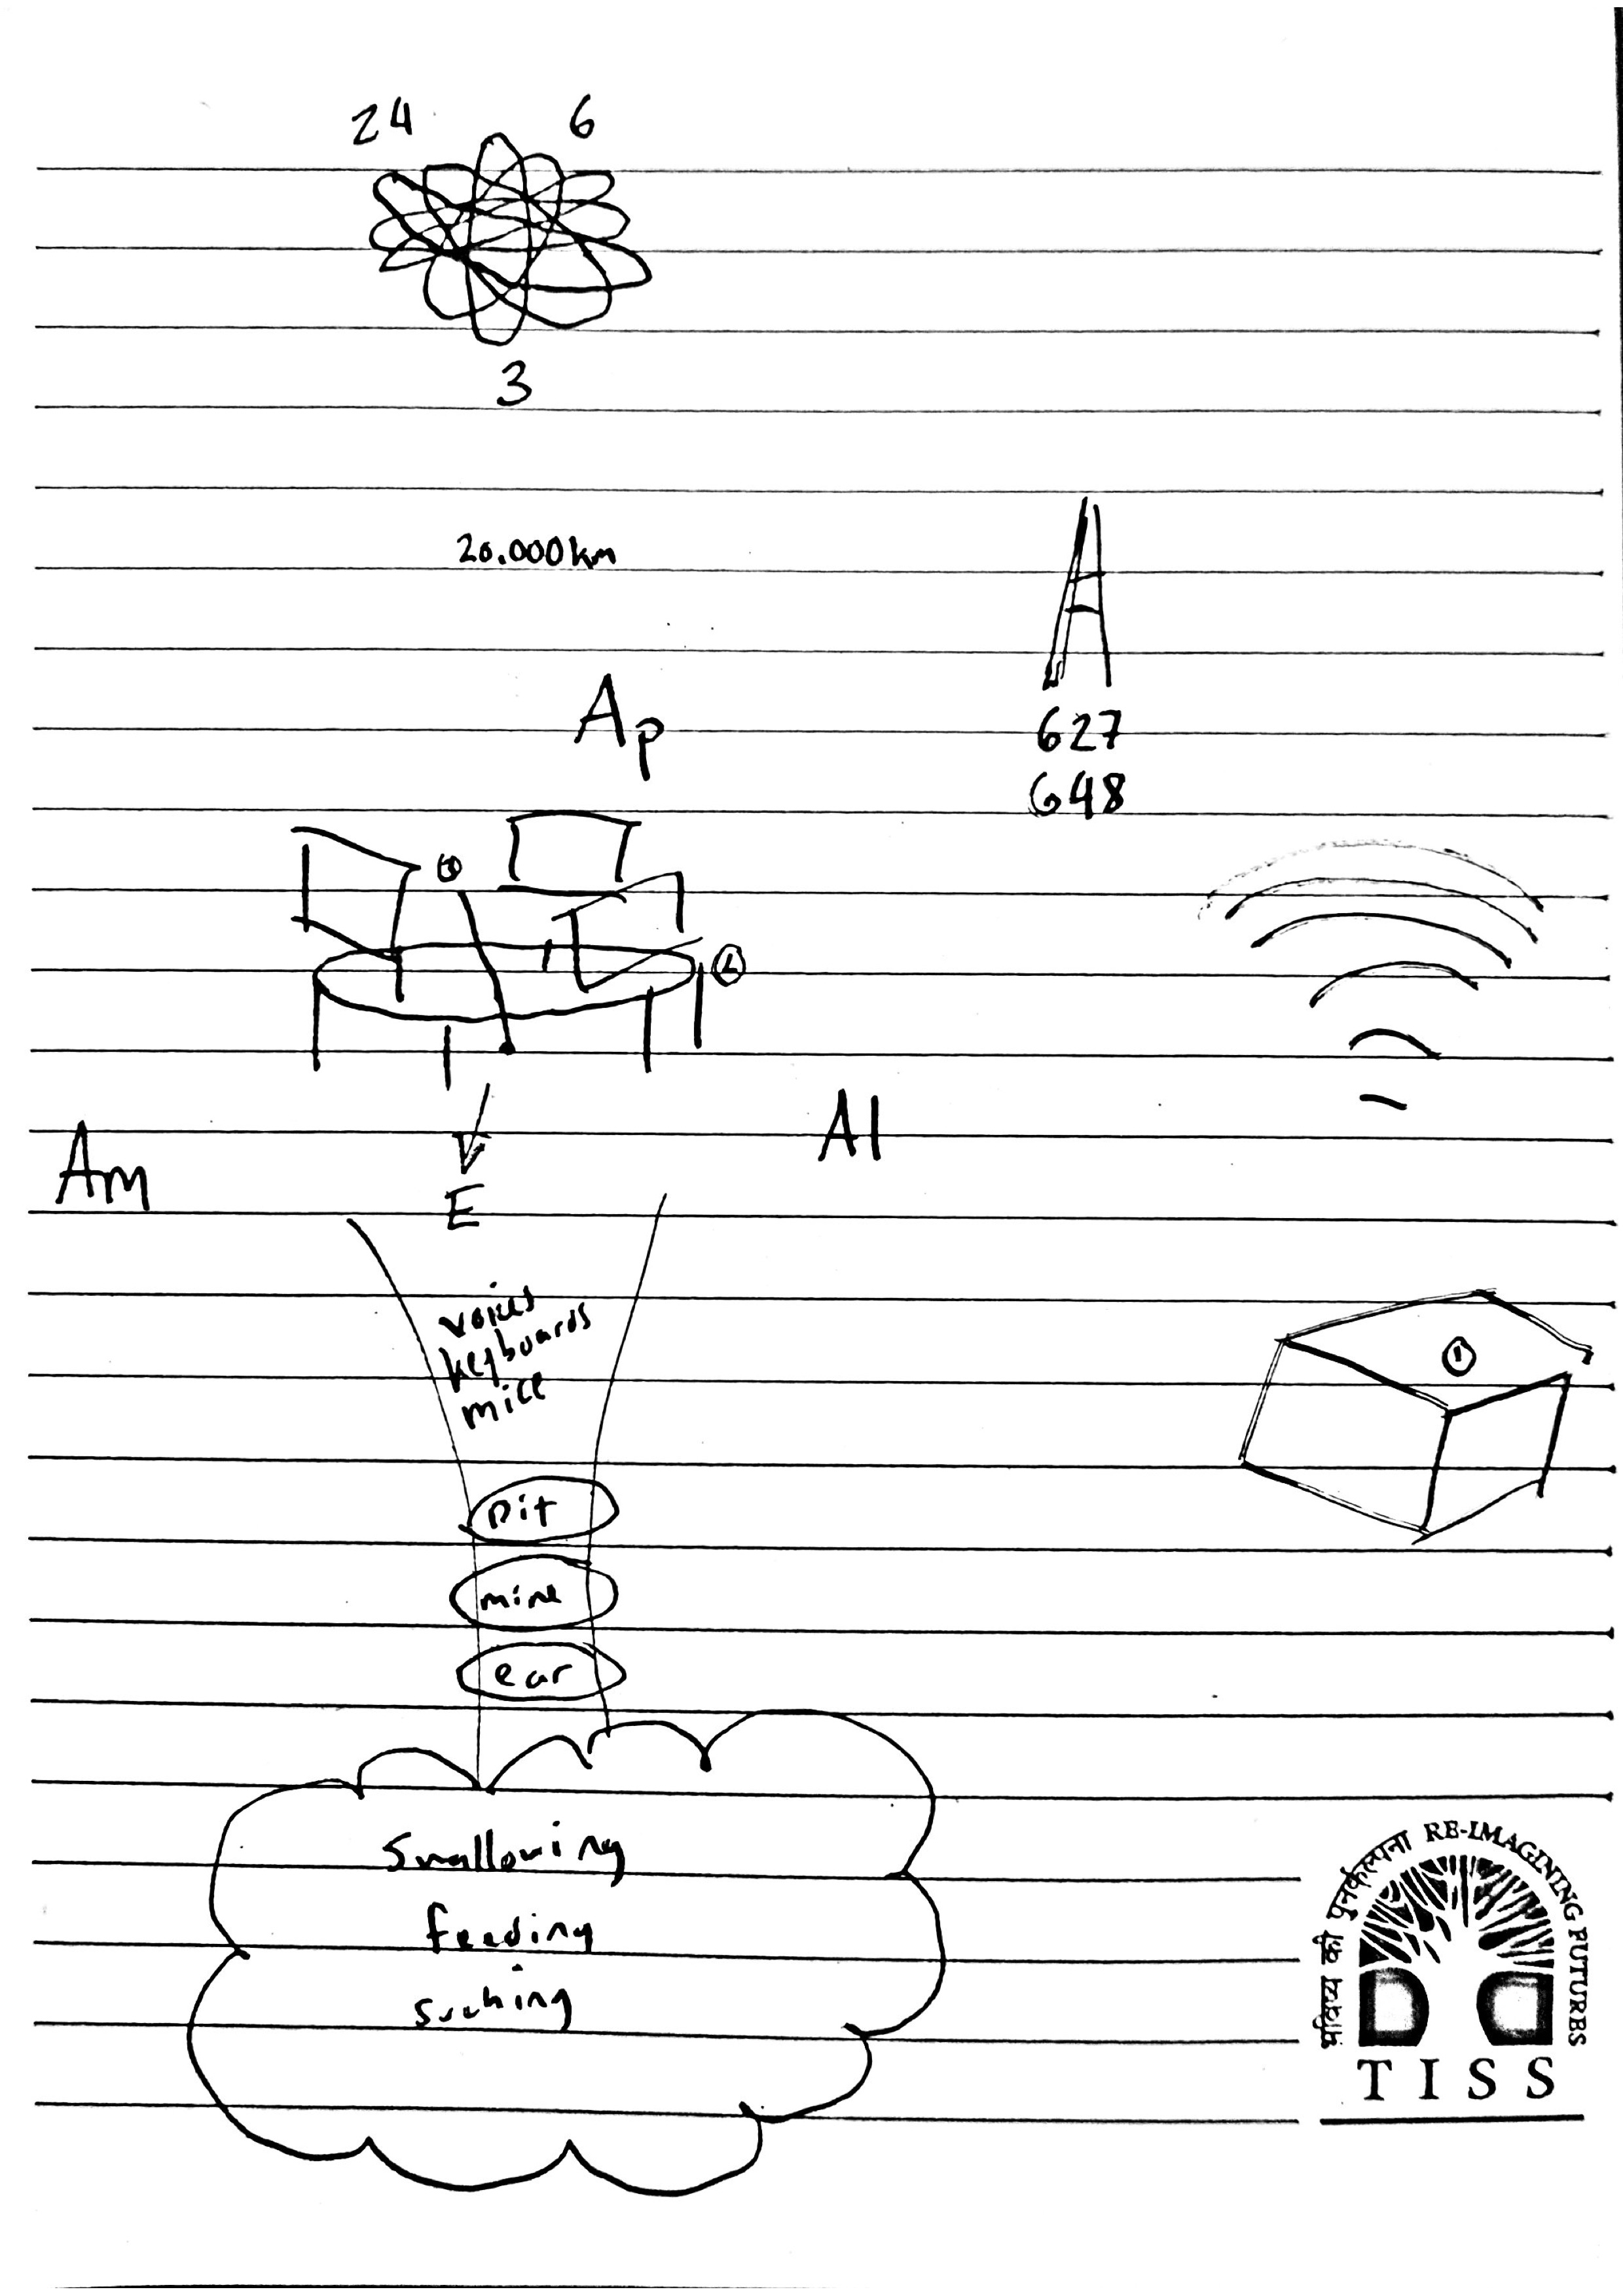 24 6
3
20.000km
Ap
627
648
Am
Al
E
voices
keyboards
mice
pit
mine
ear
1
swallowing
feeding
sucking
भविष्य की पुनर्कल्पना RE-IMAGINING FUTURES
TISS